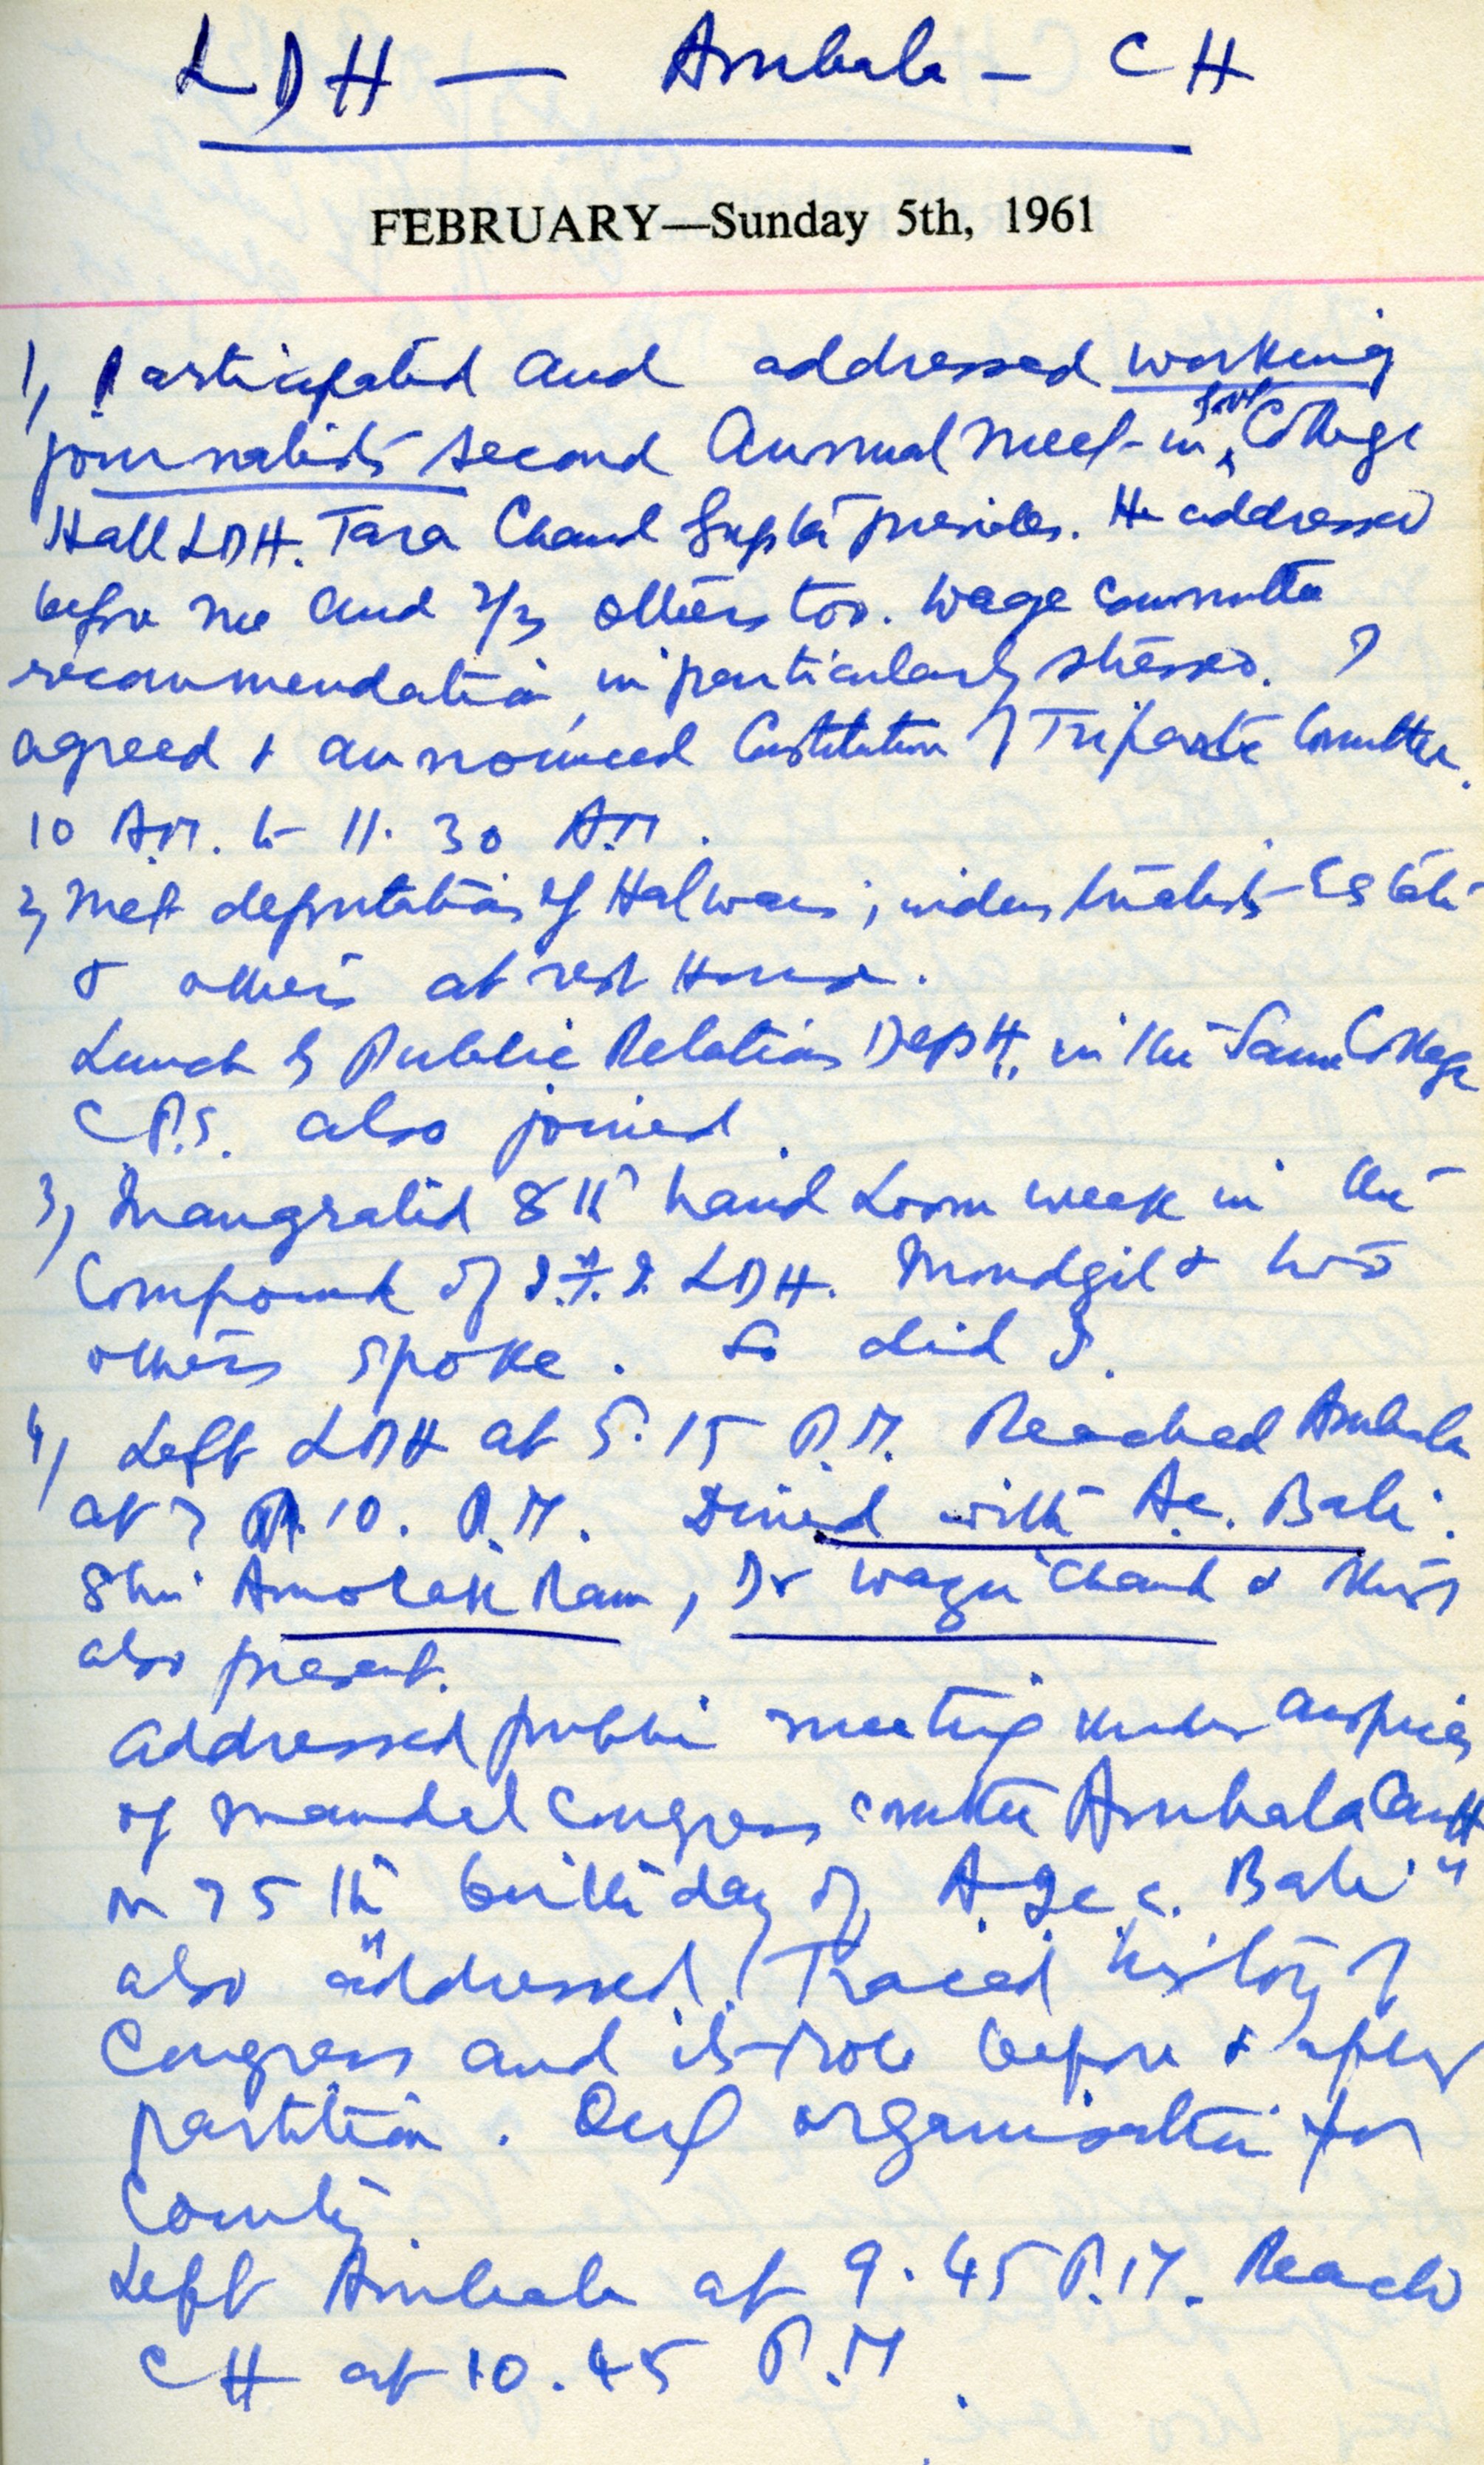 LDH — Ambala - CH
FEBRUARY—Sunday 5th, 1961
1, Participated and addressed working
journalists second Annual Meet in Govt College
Hall LDH. Tara Chand Gupta presides. He addressed
before me and 2/3 others too. Wage committe
recommendation in particularly stressed. I
agreed & announced Constitution of Tripartite Committee.
10 A.M. to 11.30 A.M.
2, Met deputations of Halwais, industrialists Estate
& others at rest House.
Lunch by Public Relations Deptt. in the same College
C.P.S. also joined
3, Inaugrated 8th hand Loom week in the
Compound of I.T.I. LDH. Moudgil & two
others spoke. So did I.
4, Left LDH at 5.15 P.M. Reached Ambala
at 7 10. P.M. Dined with A.C. Bali.
Shri Amolak Ram, Dr Wazir Chand & others
also present.
Addressed public meeting under auspices
of mandal Congress comittee Ambala Cantt
on 75th birthday of A.I.C.C. Bali
also addressed. Traced history of
Congress and its role before & after
partition. Only organisation for
Country.
Left Ambala at 9.45 P.M. Reached
CH at 10.45 P.M.